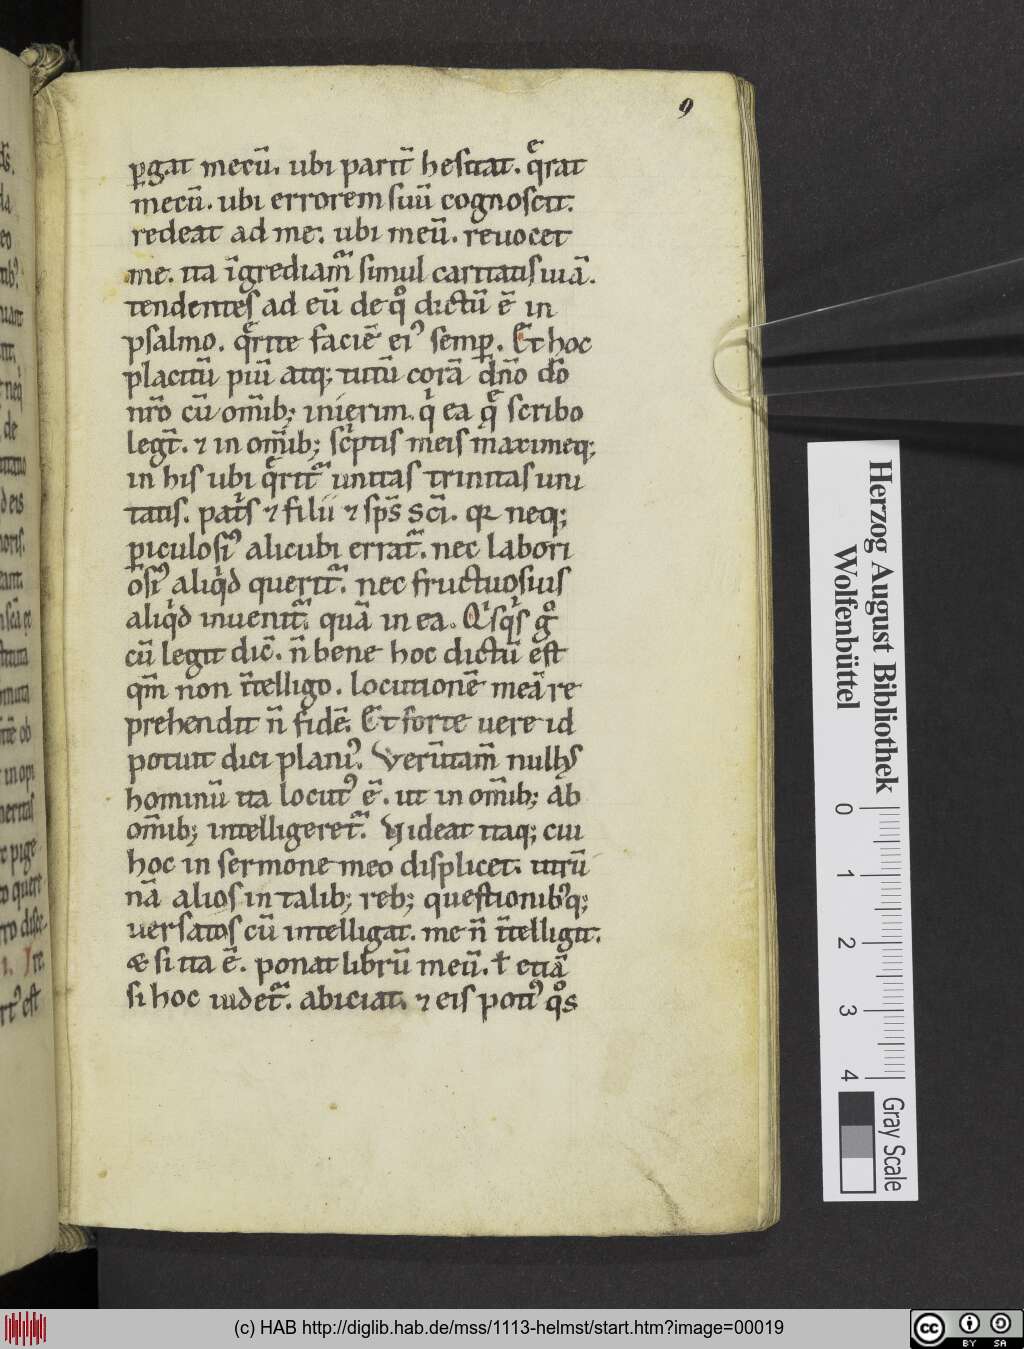 9
ꝑgat mecū. ubi parit̄ hesitat. qͤrat
mecū. ubi errorem suū cognoscit.
redeat ad me. ubi meū. reuocet
me. ita īgrediamᷓ simul caritatis uiā.
tendentes ad eū de qͦ dictū ē in
psalmo. qͤrite faciē eiꝰ semꝑ. Et hoc
placitū piū atq; tutū corā dn̄o dō
nr̄o cū om̄ib; inierim. qͥ ea qͤ scribo
legt̄. ⁊ in om̄ib; scͥptis meis maximeq;
in his ubi qͤritᷓ unitas trinitas uni
tatis. patͥs ⁊ filii ⁊ sp̄s sc̄i. qꝛ neq;
ꝑiculosiꝰ alicubi erratᷓ. nec labori
osiꝰ aliqͥd queritᷓ. nec fructuosius
aliqͥd inuenitᷓ. quā in ea. Qͥsqͥs gͦ
cū legit dic̄. n̄ bene hoc dictū est
qm̄ non īntelligo. locutionē meā re
prehendit n̄ fidē. Et forte uere id
potuit dici planiꝰ. Verūtam̄ nullꝰ
hominū ita locutꝰ ē. ut in om̄ib; ab
om̄ib; intelligeretᷓ. Videat itaq; cui
hoc in sermone meo displicet. utrū
nā alios in talib; reb; questionibꝰq;
uersatos cū intelligat. me n̄ īntelligit.
& si ita ē. ponat librū meū. ł etiā
si hoc uidetᷓ. abiciat. ⁊ eis potiꝰ qͦs
Herzog August Bibliothek
Wolfenbüttel
0 1 2 3 4
Gray Scale
(c) HAB http://diglib.hab.de/mss/1113-helmst/start.htm?image=00019
cc BY SA